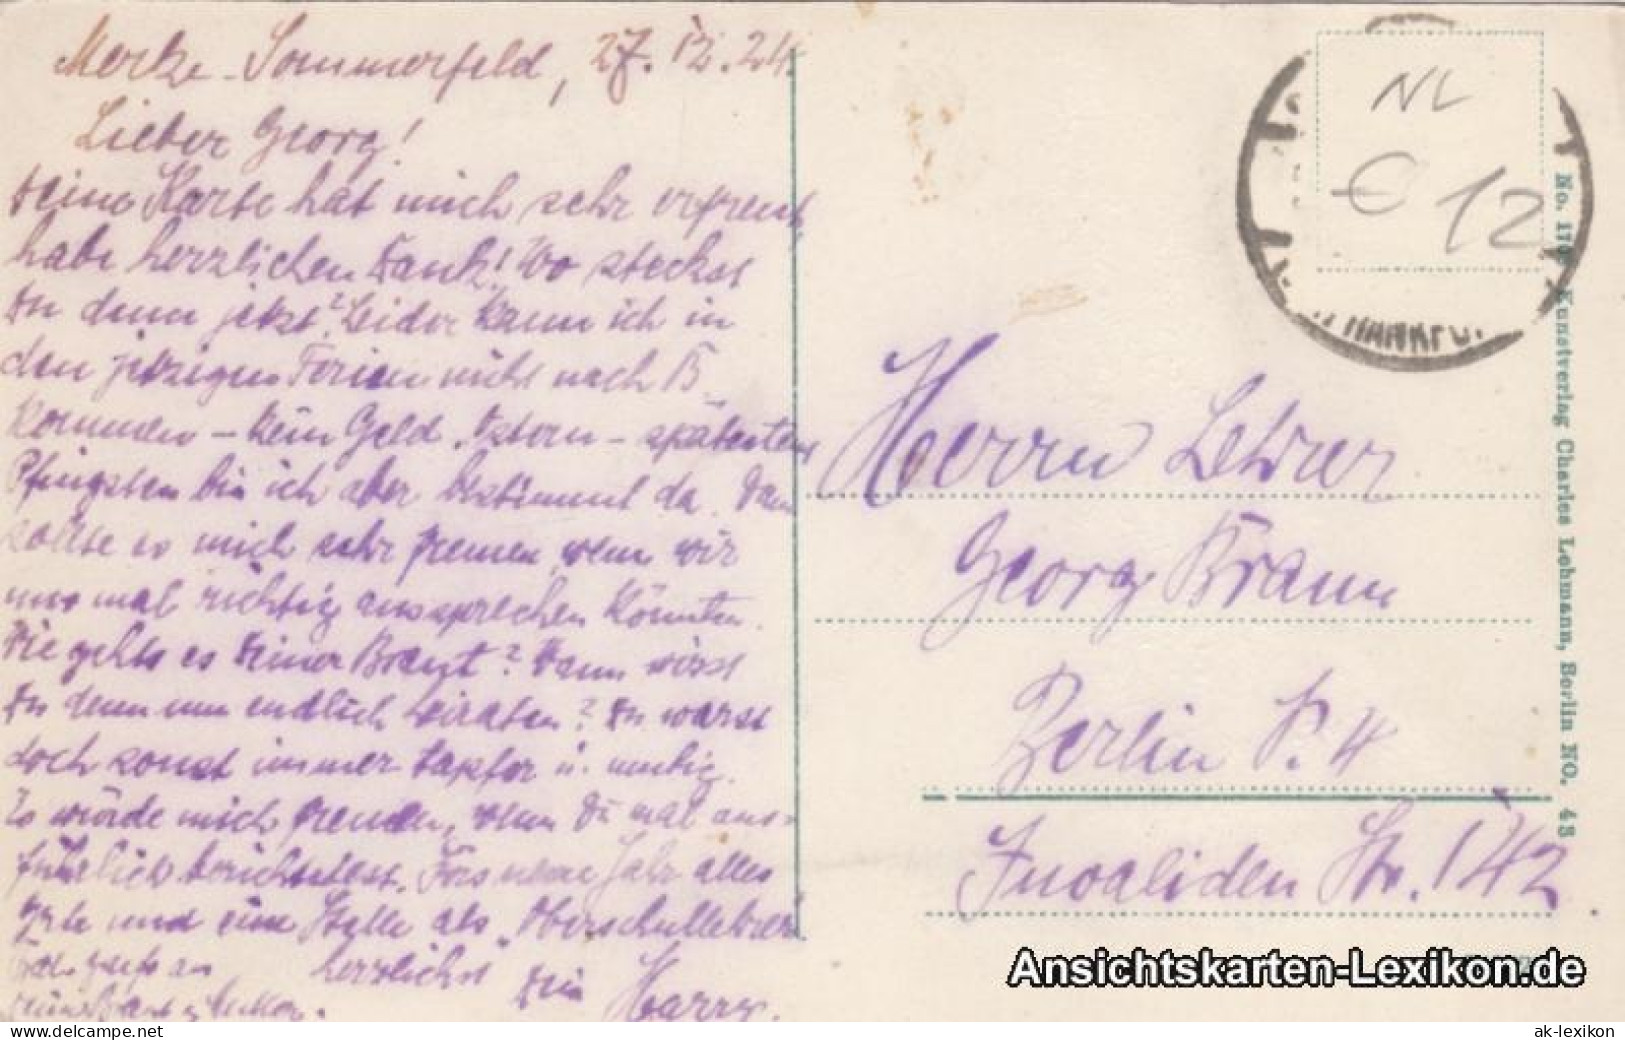 Merke-Sommerfeld, 27.12.24.
Lieber Georg!
Deine Karte hat mich sehr erfreut,
habe herzlichen Dank! Wo steckst
Du denn jetzt? Leider kann ich in
den jetzigen Ferien nicht nach B.
kommen – kein Geld. Ostern – spätestens
Pfingsten bin ich aber bestimmt da. Dann
sollte es mich sehr freuen, wenn wir
uns mal richtig aussprechen könnten.
Wie gehts es Deiner Braut? Wann wirst
Du denn nun endlich heiraten? Du warst
doch sonst immer tapfer u. mutig.
Es würde mich freuen, wenn Du mal aus-
führlich berichtetest. Fürs neue Jahr alles
Gute und eine Stelle als „Oberschullehrer"
herzlichst Dein Harry.
NL
€ 12
Herrn Lehrer
Georg Braun
Berlin N. 4
Invaliden Str. 142
Kunstverlag Charles Lehmann, Berlin NO. 43
Ansichtskarten-Lexikon.de
the marketplace for collectors
ak-lexikon